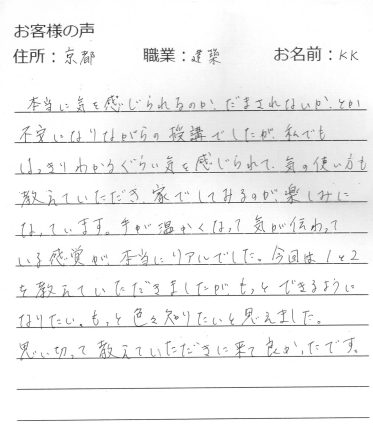 お客様の声
住所：京都　職業：建築　お名前：KK
本当に気を感じられるのか、だまされないか、とか
不安になりながらの授講でしたが、私でも
はっきりわかるぐらい気を感じられて、気の使い方も
教えていただき、家でしてみるのが、楽しみに
なっています。手が温かくなって気が伝わって
いる感覚が、本当にリアルでした。今回は1と2
を教えていただきましたが、もっとできるように
なりたい。もっと色々知りたいと思えました。
思い切って教えていただきに来て良かったです。